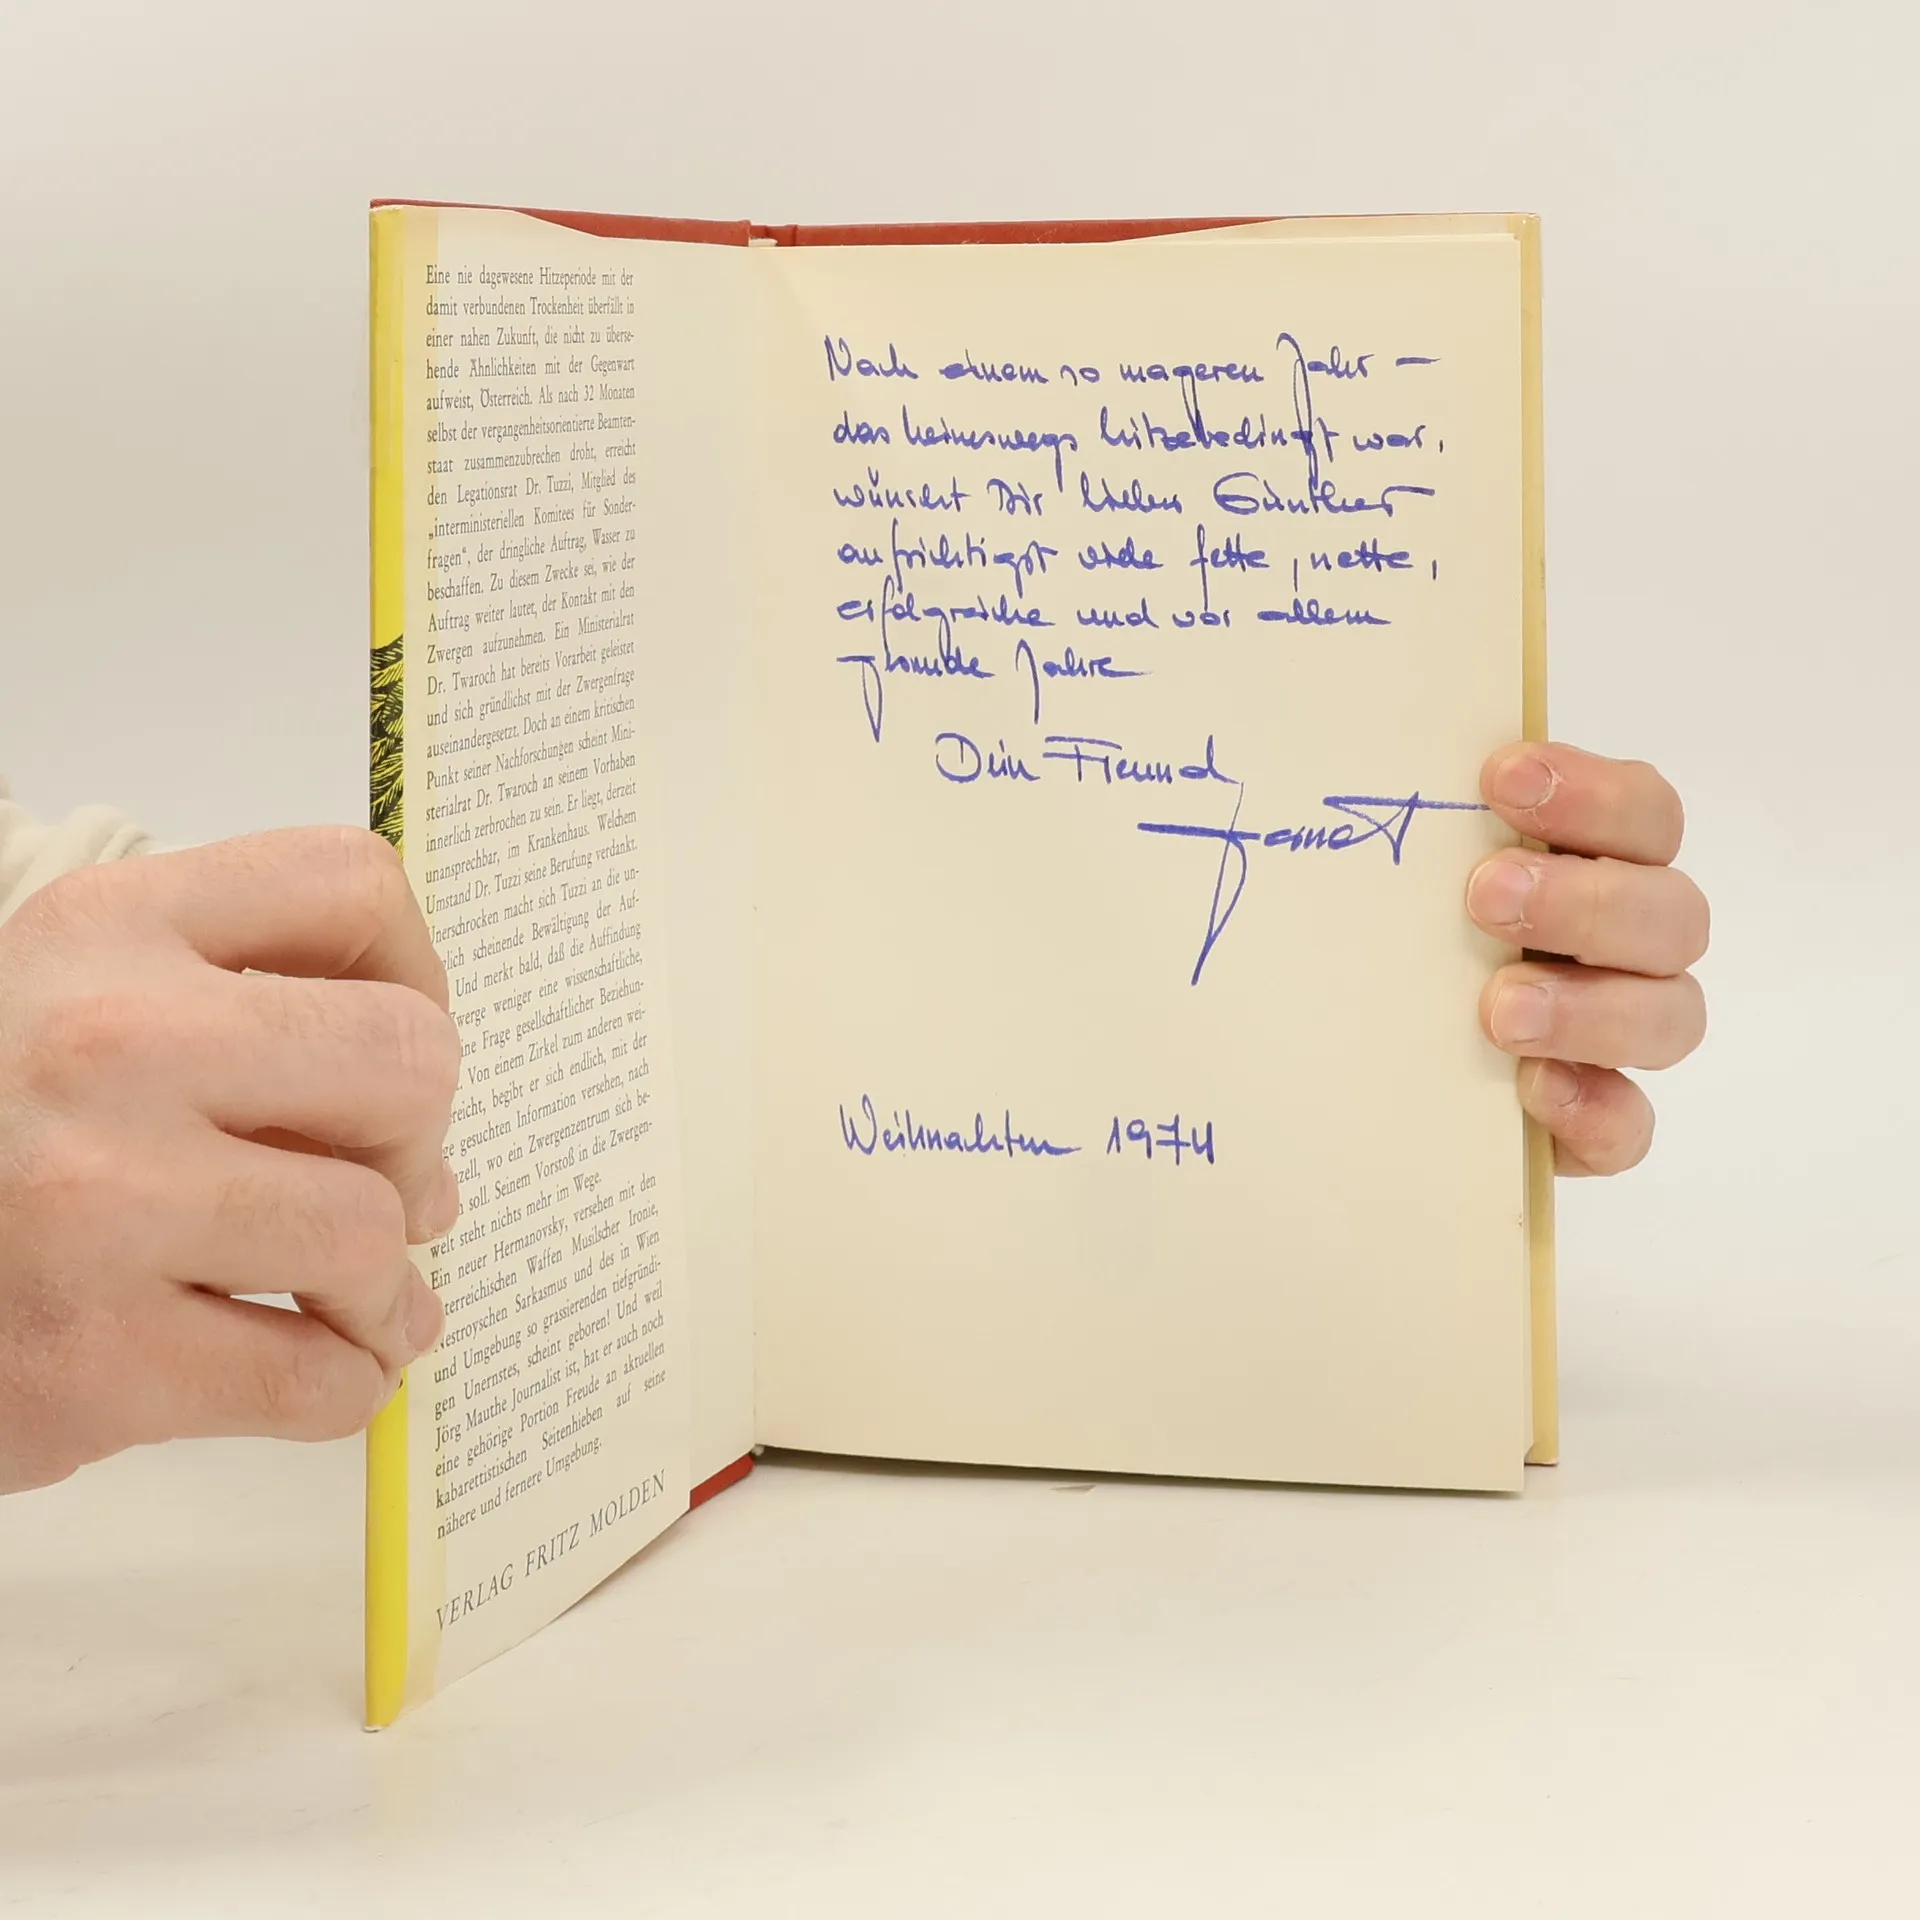 Eine nie dagewesene Hitzeperiode mit der
damit verbundenen Trockenheit überfällt in
einer nahen Zukunft, die nicht zu überse-
hende Ähnlichkeiten mit der Gegenwart
aufweist, Österreich. Als nach 32 Monaten
selbst der vergangenheitsorientierte Beamten-
staat zusammenzubrechen droht, erreicht
den Legationsrat Dr. Tuzzi, Mitglied des
„interministeriellen Komitees für Sonder-
fragen“, der dringliche Auftrag, Wasser zu
beschaffen. Zu diesem Zwecke sei, wie der
Auftrag weiter lautet, der Kontakt mit den
Zwergen aufzunehmen. Ein Ministerialrat
Dr. Twaroch hat bereits Vorarbeit geleistet
und sich gründlichst mit der Zwergenfrage
auseinandergesetzt. Doch an einem kritischen
Punkt seiner Nachforschungen scheint Mini-
sterialrat Dr. Twaroch an seinem Vorhaben
innerlich zerbrochen zu sein. Er liegt, derzeit
unansprechbar, im Krankenhaus. Welchem
Umstand Dr. Tuzzi seine Berufung verdankt.
Unerschrocken macht sich Tuzzi an die un-
glich scheinende Bewältigung der Auf-
Und merkt bald, daß die Auffindung
Zwerge weniger eine wissenschaftliche,
ine Frage gesellschaftlicher Beziehun-
. Von einem Zirkel zum anderen wei-
ereicht, begibt er sich endlich, mit der
ge gesuchten Information versehen, nach
nzell, wo ein Zwergenzentrum sich be-
n soll. Seinem Vorstoß in die Zwergen-
welt steht nichts mehr im Wege.
Ein neuer Hermanovsky, versehen mit den
terreichischen Waffen Musilscher Ironie,
Nestroyschen Sarkasmus und des in Wien
und Umgebung so grassierenden tiefgründi-
gen Unernstes, scheint geboren! Und weil
Jörg Mauthe Journalist ist, hat er auch noch
eine gehörige Portion Freude an aktuellen
kabarettistischen Seitenhieben auf seine
nähere und fernere Umgebung.
VERLAG FRITZ MOLDEN
Nach einem so mageren Jahr –
das keineswegs hitzebedingt war,
wünscht Dir lieber Günther
aufrichtigst viele fette, nette,
erfolgreiche und vor allem
gesunde Jahre
Dein Freund
Weihnachten 1974